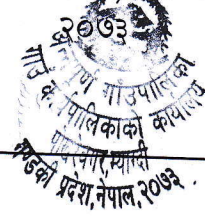 २०७३
गाउँपालिका
गाउँ कार्यपालिकाको कार्यालय
गण्डकी प्रदेश, नेपाल, २०७३